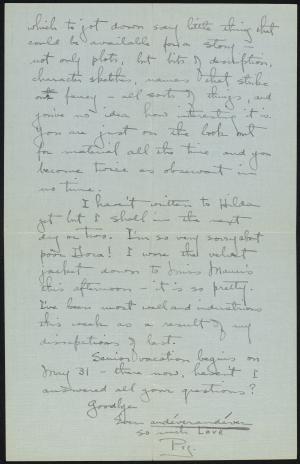 which to jot down any little thing that
could be available for a story —
not only plots, but bits of description,
character sketches, names that strike
our fancy — all sorts of things, and
you've no idea how interesting it is.
You are just on the look out
for material all the time, and you
become twice as observant in
no time.
I haven't written to Hilda
yet but I shall in the next
day or two. I'm so very sorry about
poor Dora! I wore the velvet
jacket down to Miss
this afternoon — it is so pretty.
I've been most well and industrious
this week as a result of my
dissipations of last.
Senior vacation begins on
May 31 — there now, haven't I
answered all your questions?
Goodbye
andéverandéver
so much love
Peg.